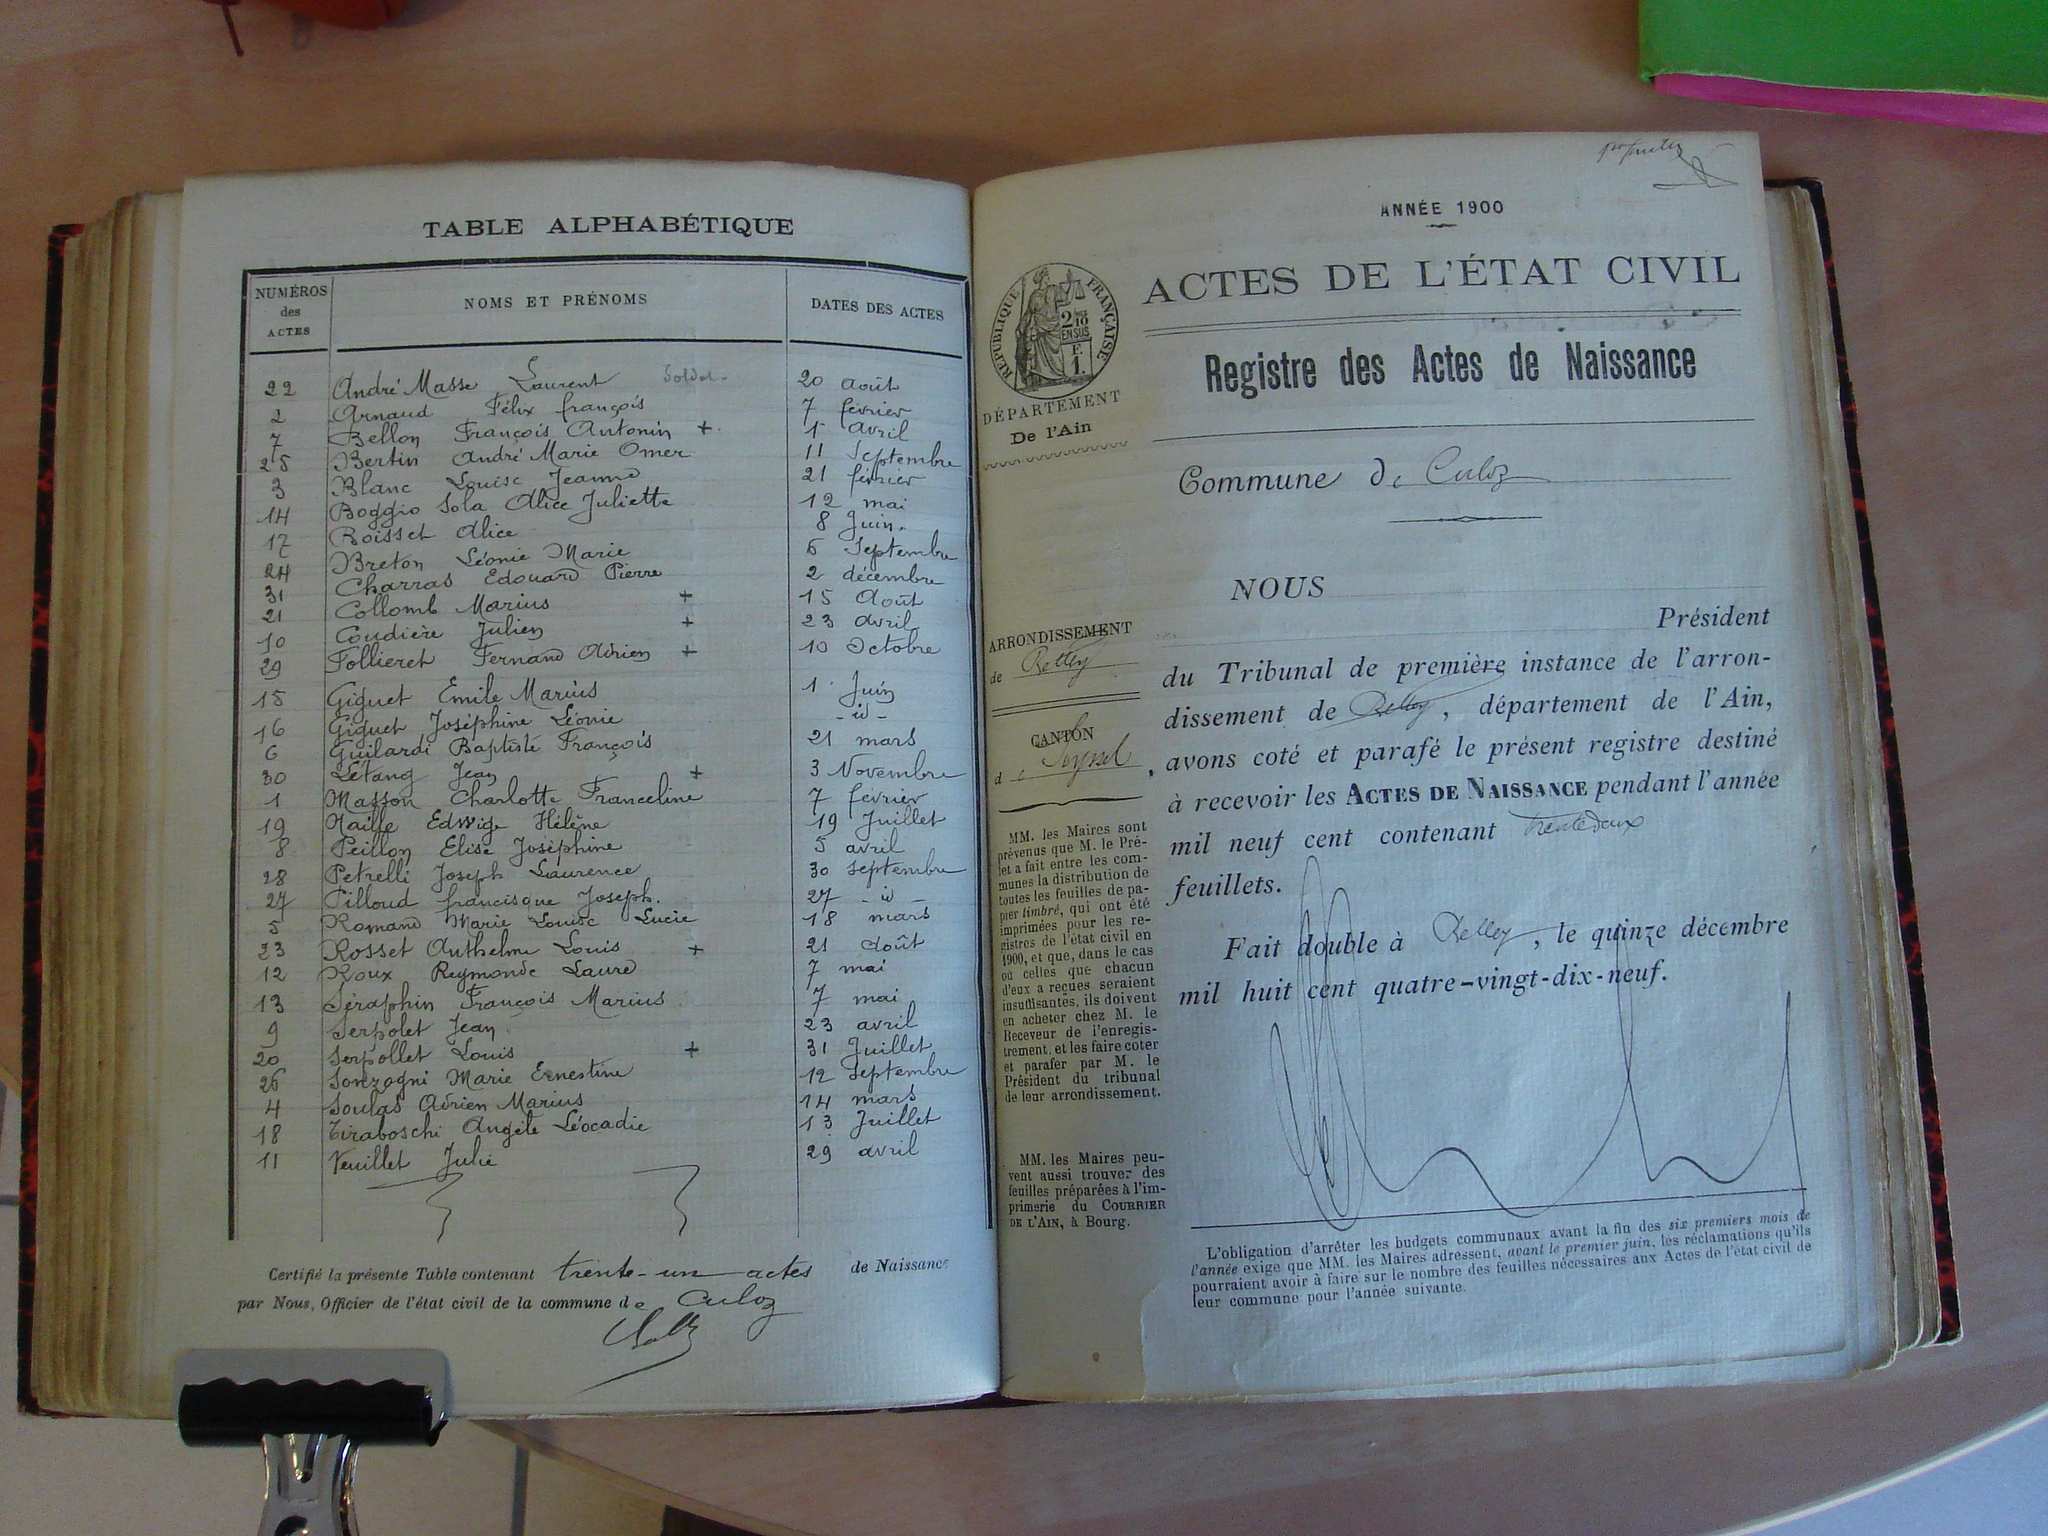 TABLE ALPHABÉTIQUE
NUMÉROS des ACTES NOMS ET PRÉNOMS DATES DES ACTES
22 André Masse Laurent Soldat 20 août
2 Arnaud Félix françois 7 février
7 Bellon François Antonin + 1 avril
25 Bertin André Marie Omer 11 Septembre
3 Blanc Louise Jeanne 21 février
14 Boggio Sola Alice Juliette 12 mai
17 Boisset Alice 8 Juin.
24 Breton Léonie Marie 6 Septembre
31 Charras Edouard Pierre 2 décembre
21 Collomb Marius + 15 Août
10 Coudière Julien + 23 avril
29 Follieret Fernand Adrien + 10 Octobre
15 Giguet Emile Marius 1 Juin
16 Giguet Joséphine Léonie - id -
6 Guilardi Baptiste François 21 mars
30 Létang Jean + 3 Novembre
1 Masson Charlotte Franceline 7 février
19 Edwige Hélène 19 Juillet
8 Peillon Elise Joséphine 5 avril
28 Petrelli Joseph Laurence 30 Septembre
27 Pilloud francisque Joseph. 27 - id -
5 Romand Marie Louise Lucie 18 mars
23 Rosset Anthelme Louis + 21 août
12 Roux Reymonde Laure 7 mai
13 Séraphin François Marius 7 mai
9 Serpolet Jean 23 avril
20 Serpollet Louis + 31 Juillet
26 Sonzogni Marie Ernestine 12 Septembre
4 Soulas Adrien Marius 14 mars
18 Tiraboschi Angèle Léocadie 13 Juillet
11 Veuillet Julie 29 avril
Certifié la présente Table contenant trente-un actes de Naissance
par Nous, Officier de l'état civil de la commune de Culoz
ANNÉE 1900
ACTES DE L'ÉTAT CIVIL
RÉPUBLIQUE FRANÇAISE
2 10 EN SUS
F. 1.
DÉPARTEMENT
De l'Ain
Registre des Actes de Naissance
Commune de Culoz
ARRONDISSEMENT
de Belley
CANTON
de Seyssel
MM. les Maires sont
prévenus que M. le Pré-
fet a fait entre les com-
munes la distribution de
toutes les feuilles de pa-
pier timbré, qui ont été
imprimées pour les re-
gistres de l'état civil en
1900, et que, dans le cas
où celles que chacun
d'eux a reçues seraient
insuffisantes, ils doivent
en acheter chez M. le
Receveur de l'enregis-
trement, et les faire coter
et parafer par M. le
Président du tribunal
de leur arrondissement.
MM. les Maires peu-
vent aussi trouver des
feuilles préparées à l'im-
primerie du COURRIER
DE L'AIN, à Bourg.
NOUS
Président
du Tribunal de première instance de l'arron-
dissement de Belley, département de l'Ain,
avons coté et parafé le présent registre destiné
à recevoir les ACTES DE NAISSANCE pendant l'année
mil neuf cent contenant trente deux
feuillets.
Fait double à Belley, le quinze décembre
mil huit cent quatre-vingt-dix-neuf.
L'obligation d'arrêter les budgets communaux avant la fin des six premiers mois de
l'année exige que MM. les Maires adressent, avant le premier juin, les réclamations qu'ils
pourraient avoir à faire sur le nombre des feuilles nécessaires aux Actes de l'état civil de
leur commune pour l'année suivante.